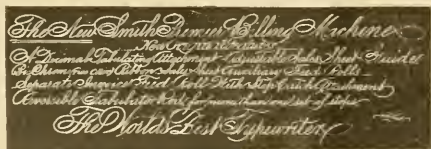 The New Smith Premier Billing Machine
New Complete Features
A Decimal Tabulating Attachment Adjustable Sales Sheet Guide
Bi-Chrome (two color) Ribbon Sales Sheet Auxiliary Feed Rolls
Separate Invoice Feed Roll With Stop Attachment
Reversible Tabulator Rod for more than one set of stops
The World's Best Typewriter